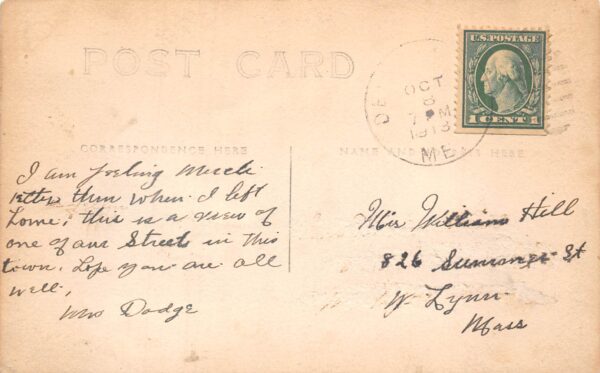 POST CARD
U.S. POSTAGE
1 CENT 1
OCT
8
7 M
1913
ME
CORRESPONDENCE HERE
NAME AND ADDRESS HERE
I am feeling Much
better then when I left
home, this is a view of
one of our Streets in this
town. hope you are all
well,
Mrs Dodge
William Hill
826 St
W. Lynn
Mass